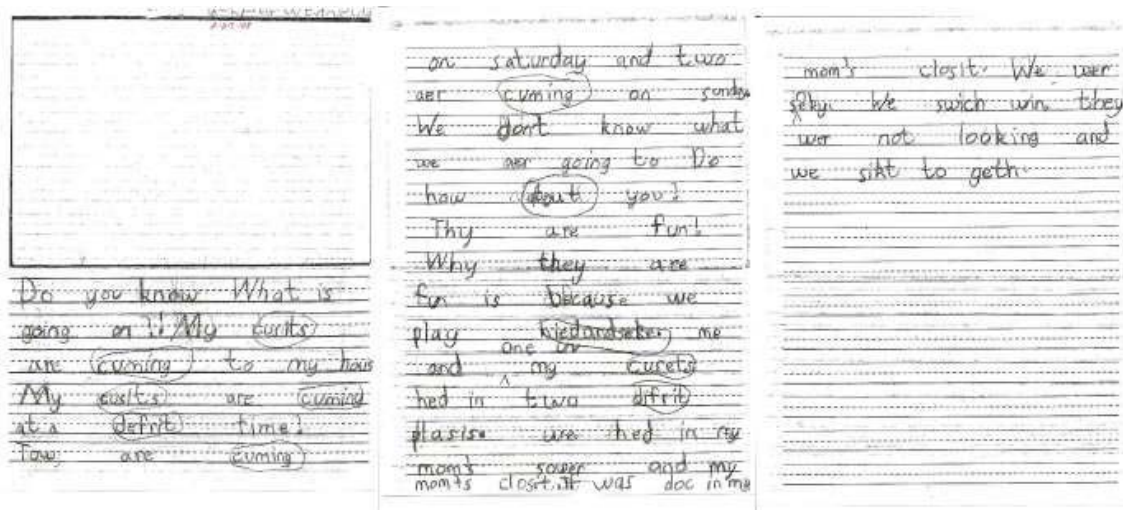 Do you know What is
going on?! My curits
are cuming to my hous
My cusits are cuming
at a defrit time!
Tow are cuming
on saturday and two
aer cuming on sunday
We dont know what
we aer going to Do
how about you?
Thy are fun!
Why they are
fun is because we
play hiedandseker me
one uv
and my curets
hed in two difrit
plasise we hed in my
mom's sower and my
mom's closit. It was doc in my
mom's closit. We wer
seky. We swich win they
wer not looking and
we sikt to geth.